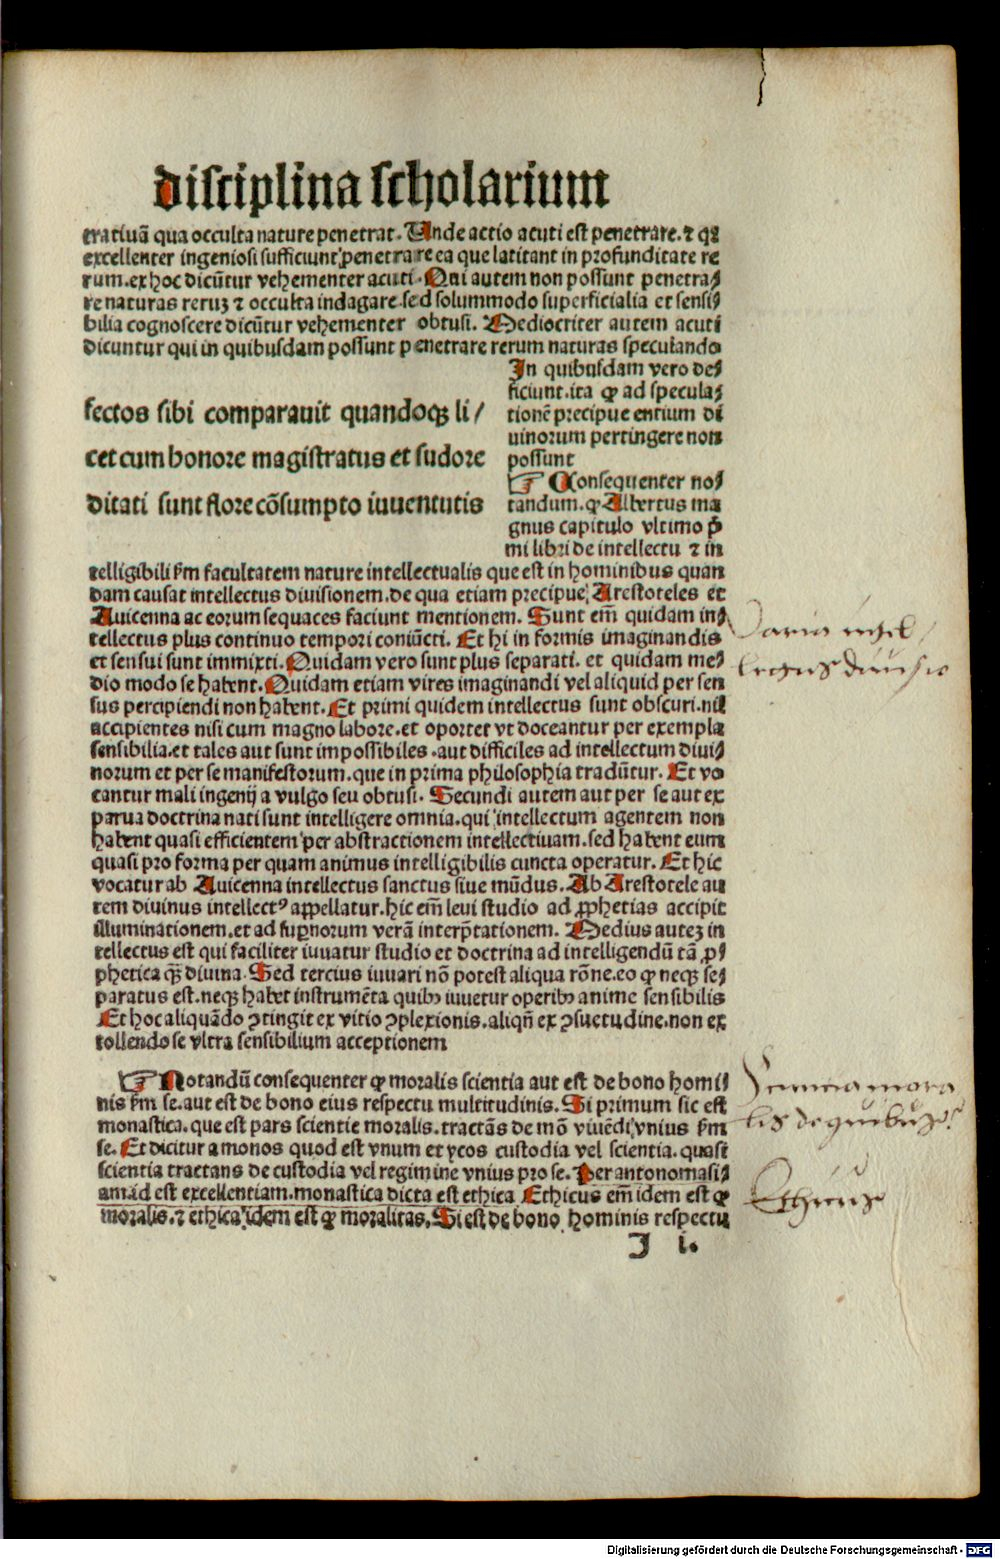 disciplina scholarium
tratiuā qua occulta nature penetrat. Unde actio acuti est penetrare. ⁊ qꝛ
excellenter ingeniosi sufficiunt penetrare ea que latitant in profunditate re
rum. ex hoc dicūtur vehementer acuti. Qui autem non possunt penetra/
re naturas reruꝫ ⁊ occulta indagare. sed solummodo superficialia et sensi/
bilia cognoscere dicūtur vehementer obtusi. Mediocriter autem acuti
dicuntur qui in quibusdam possunt penetrare rerum naturas speculando
In quibusdam vero de/
ficiunt. ita ꝙ ad specula/
tionē precipue entium di
uinorum pertingere non
possunt
fectos sibi comparauit quandoqꝫ li/
cet cum honore magistratus et sudore
ditati sunt flore cōsumpto iuuentutis
☞ Consequenter no/
tandum. ꝙ Albertus ma
gnus capitulo vltimo p̄
mi libri de intellectu ⁊ in
telligibili ẜm facultatem nature intellectualis que est in hominibus quan
dam causat intellectus diuisionem. de qua etiam precipue Arestoteles et
Auicenna ac eorum sequaces faciunt mentionem. Sunt em̄ quidam in/
tellectus plus continuo tempori coniūcti. Et hi in formis imaginandis
et sensui sunt immixti. Quidam vero sunt plus separati. et quidam me/
dio modo se habent. Quidam etiam vires imaginandi vel aliquid per sen
sus percipiendi non habent. Et primi quidem intellectus sunt obscuri. nil
accipientes nisi cum magno labore. et oportet vt doceantur per exempla
sensibilia. et tales aut sunt impossibiles. aut difficiles ad intellectum diui/
norum et per se manifestorum. que in prima philosophia tradūtur. Et vo
cantur mali ingenij a vulgo seu obtusi. Secundi autem aut per se aut ex
parua doctrina nati sunt intelligere omnia. qui intellectum agentem non
habent quasi efficientem per abstractionem intellectiuam. sed habent eum
quasi pro forma per quam animus intelligibilis cuncta operatur. Et hic
vocatur ab Auicenna intellectus sanctus siue mūdus. Ab Arestotele au
tem diuinus intellectꝰ appellatur. hic em̄ leui studio ad ꝓphetias accipit
illuminationem. et ad suꝑnorum verā interp̄tationem. Medius auteꝫ in
tellectus est qui faciliter iuuatur studio et doctrina ad intelligendū tā ꝓ/
phetica qꝫ diuina. Sed tercius iuuari nō potest aliqua rōne. eo ꝙ neqꝫ se/
paratus est. neqꝫ habet instrumēta quibꝰ iuuetur operibꝰ anime sensibilis
Et hoc aliquādo ↄtingit ex vitio ↄplexionis. aliqn̄ ex ↄsuetudine. non ex
tollendo se vltra sensibilium acceptionem
☞ Notandū consequenter ꝙ moralis scientia aut est de bono homi/
nis ẜm se. aut est de bono eius respectu multitudinis. Si primum sic est
monastica. que est pars scientie moralis. tractās de mō viuēdi vnius ẜm
se. Et dicitur a monos quod est vnum et ycos custodia vel scientia. quasi
scientia tractans de custodia vel regimine vnius pro se. Per antonomasi/
am. id est excellentiam. monastica dicta est ethica Ethicus em̄ idem est ꝙ
moralis. ⁊ ethica idem est ꝙ moralitas. Si est de bono hominis respectu
J i.
Digitalisierung gefördert durch die Deutsche Forschungsgemeinschaft - DFG